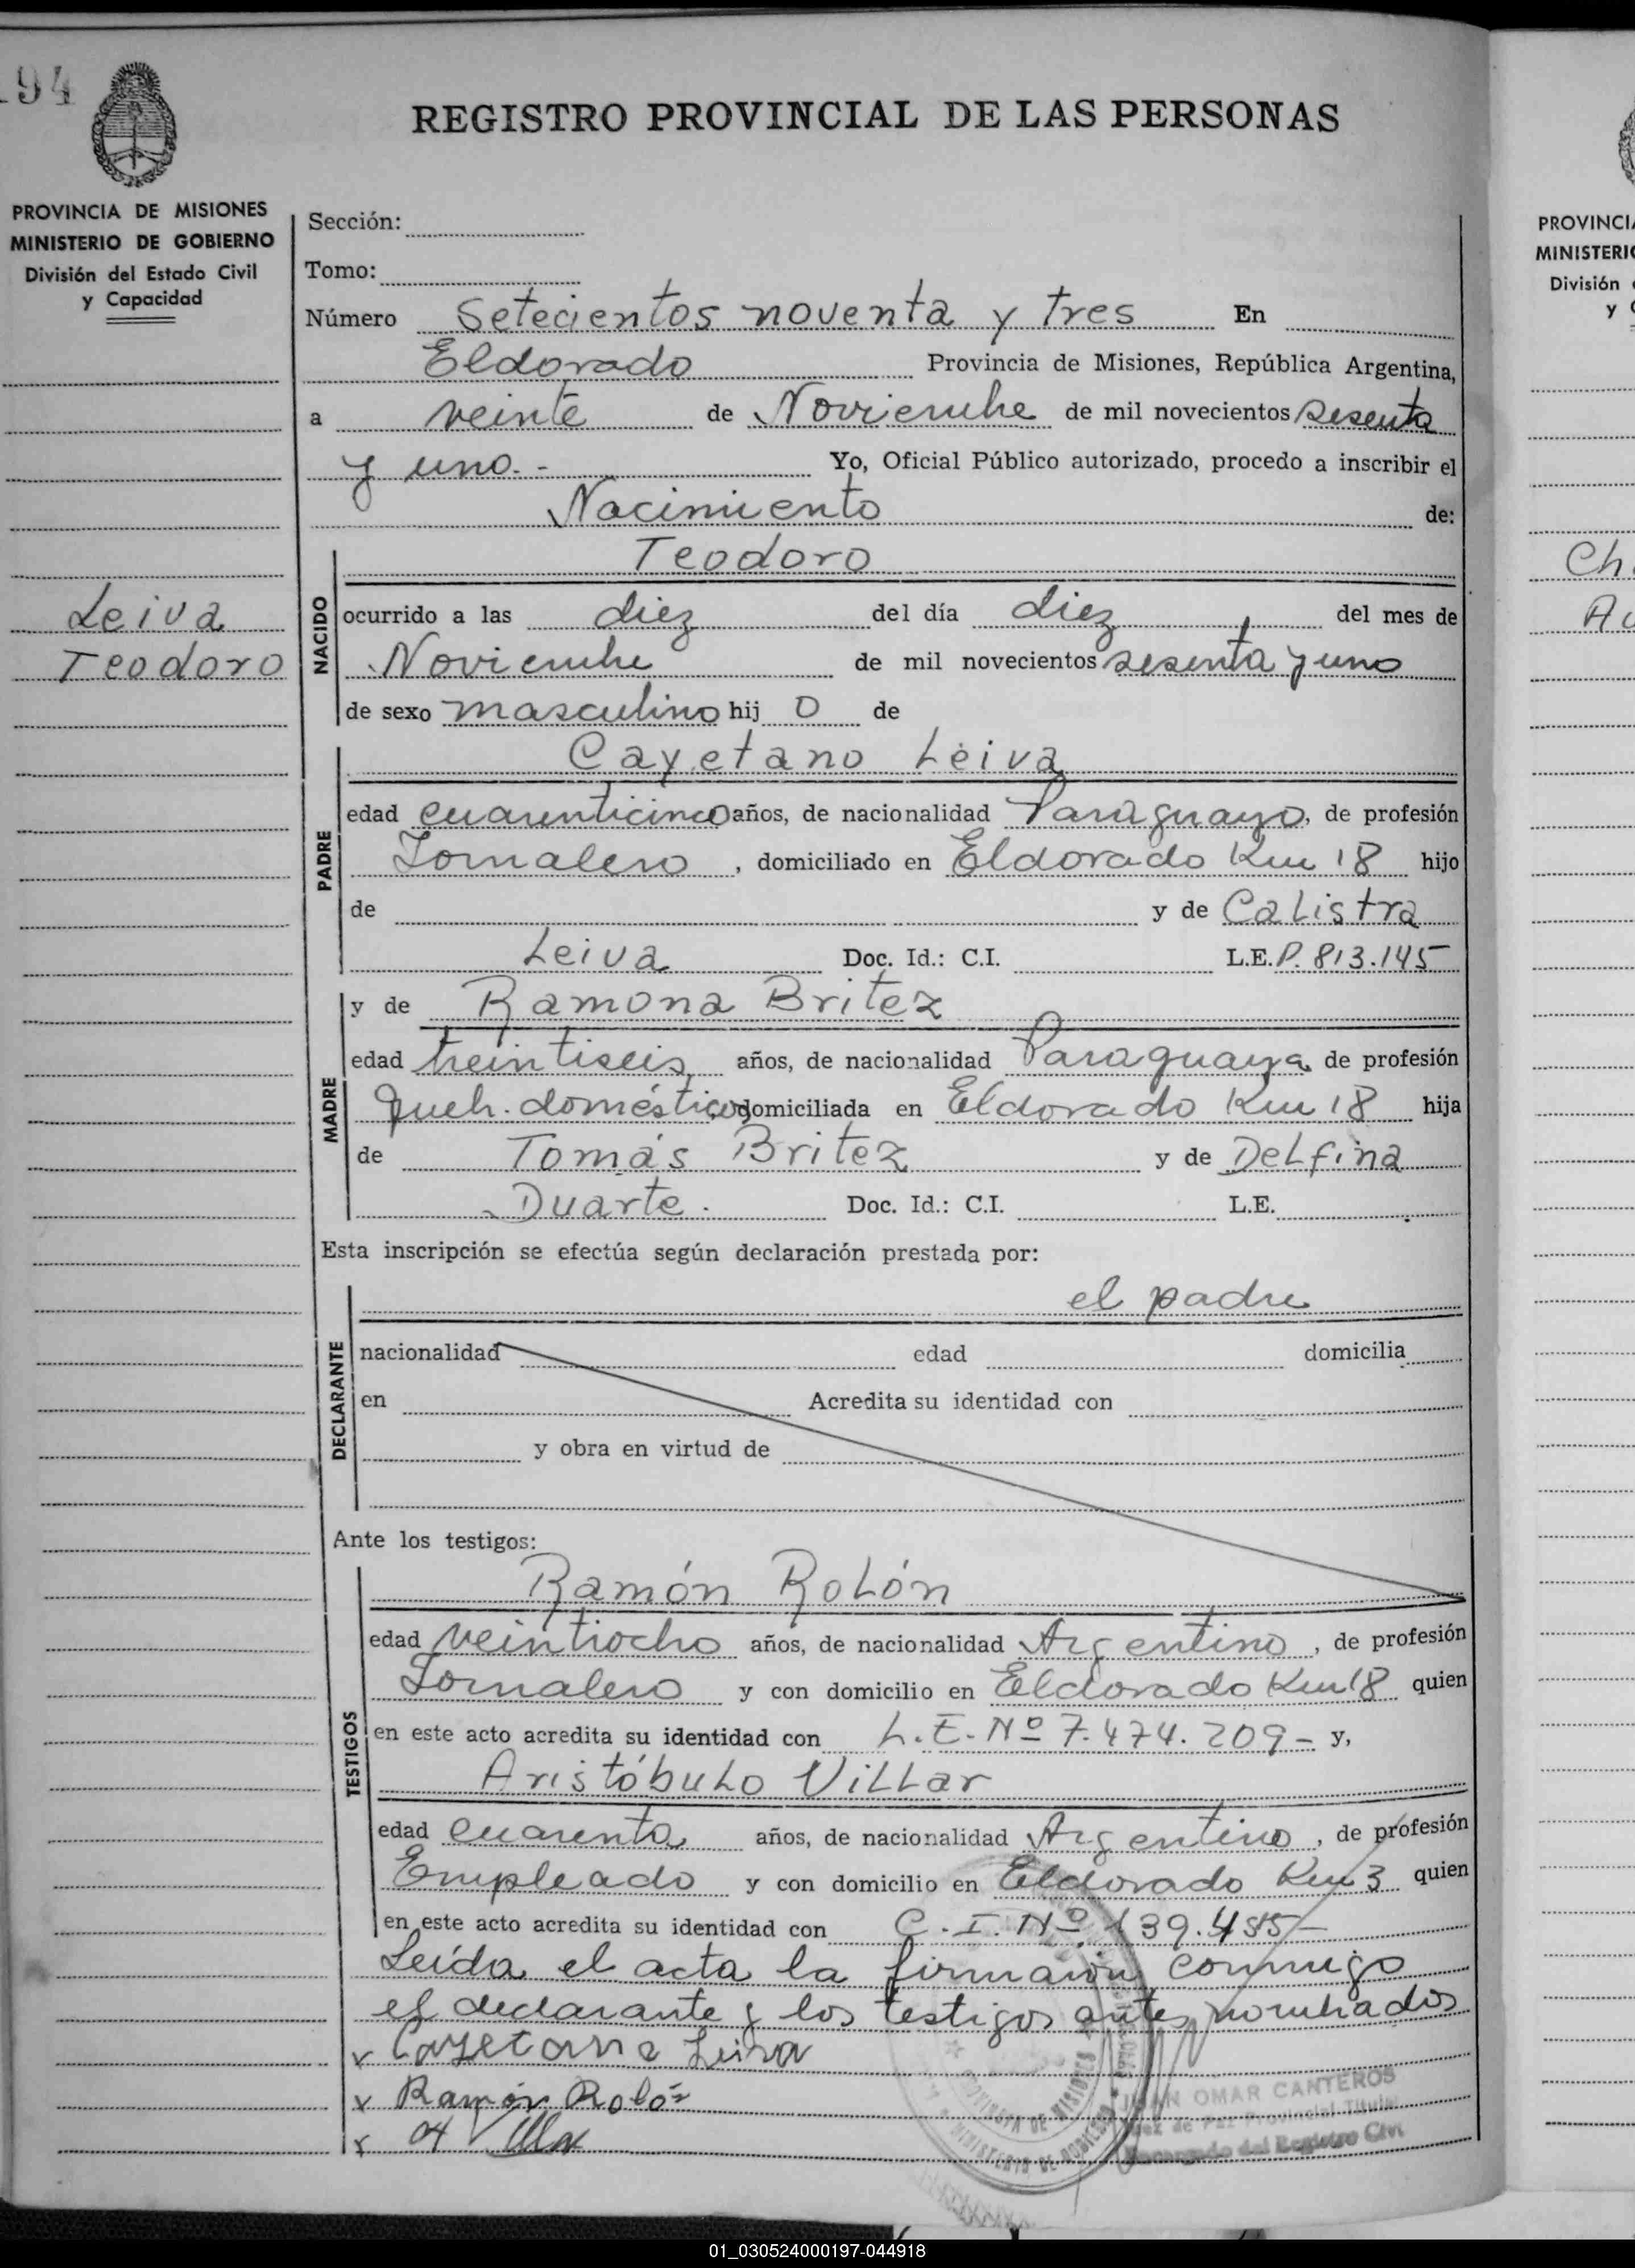 194
REGISTRO PROVINCIAL DE LAS PERSONAS
PROVINCIA DE MISIONES
MINISTERIO DE GOBIERNO
División del Estado Civil
y Capacidad
Leiva
Teodoro
Sección:
Tomo:
Número Setecientos noventa y tres En
Eldorado Provincia de Misiones, República Argentina,
a veinte de Noviembre de mil novecientos sesenta
y uno.- Yo, Oficial Público autorizado, procedo a inscribir el
Nacimiento de:
NACIDO
Teodoro
ocurrido a las diez del día diez del mes de
Noviembre de mil novecientos sesenta y uno
de sexo masculino hij o de
PADRE
Cayetano Leiva
edad cuarenticinco años, de nacionalidad Paraguayo, de profesión
Jornalero, domiciliado en Eldorado Km 18 hijo
de y de Calistra
Leiva Doc. Id.: C.I. L.E. P. 813.145
MADRE
y de Ramona Britez
edad treintiseis años, de nacionalidad Paraguaya de profesión
Queh. domésticos domiciliada en Eldorado Km 18 hija
de Tomás Britez y de Delfina
Duarte. Doc. Id.: C.I. L.E.
Esta inscripción se efectúa según declaración prestada por:
DECLARANTE
el padre
nacionalidad edad domicilia
en Acredita su identidad con
y obra en virtud de
Ante los testigos:
TESTIGOS
Ramón Rolón
edad veintiocho años, de nacionalidad Argentino, de profesión
Jornalero y con domicilio en Eldorado Km 18 quien
en este acto acredita su identidad con L.E. Nº 7.474.209- y,
Aristóbulo Villar
edad cuarenta años, de nacionalidad Argentino, de profesión
Empleado y con domicilio en Eldorado Km 3 quien
en este acto acredita su identidad con C.I. Nº 139.455-
Leída el acta la firmaron conmigo
el declarante y los testigos antes nombrados
x Cayetano Leiva
x Ramón Rolón
x
JUAN OMAR CANTEROS
Juez de Paz Provincial Titular
Encargado del Registro Civil
PROVINCIA DE MISIONES
MINISTERIO DE GOBIERNO
PROVINCIA
MINISTERIO
División
y
Ch
Au
01_030524000197-044918